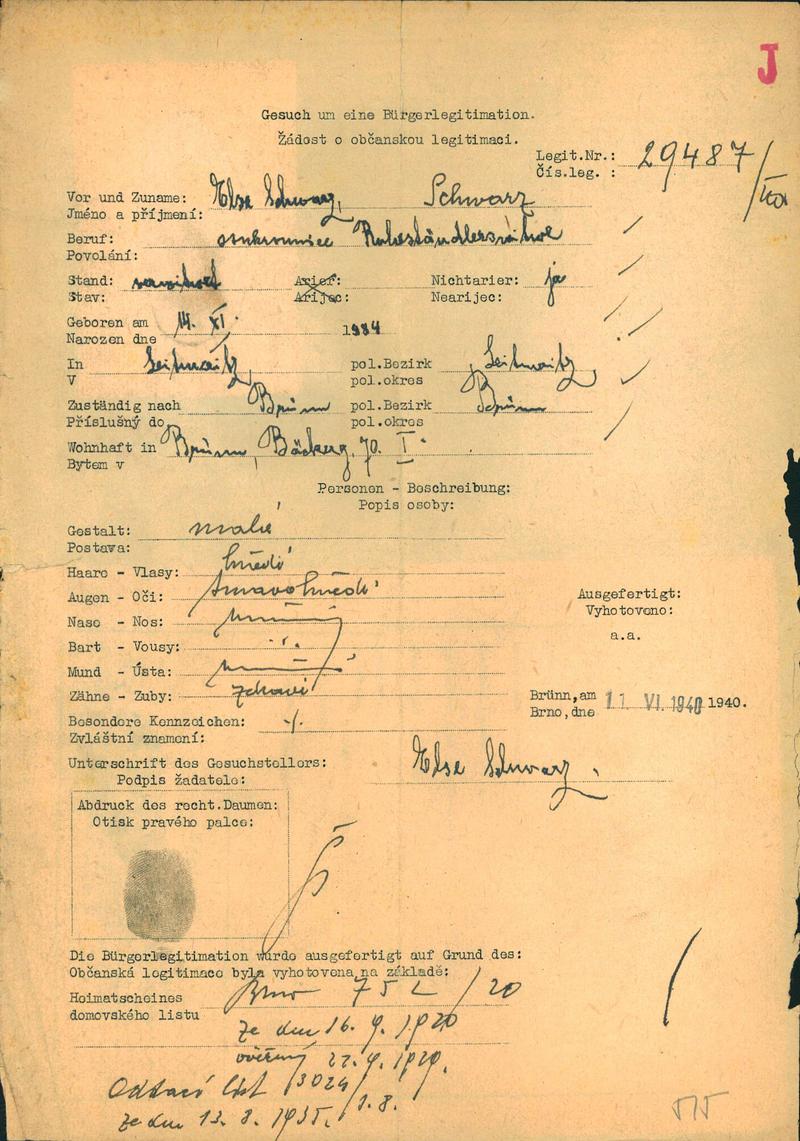 J
Gesuch um eine Bürgerlegitimation.
Žádost o občanskou legitimaci.
Legit.Nr.: 29487/
Čís.leg. :
Vor und Zuname: Else Schwarz, Schwarz
Jméno a příjmení:
Beruf: soukromnice
Povolání:
Stand: Arier: Nichtarier: ja
Stav: Arijec: Nearijec:
Geboren am 14. XI. 1884
Narozen dne
In Leitmeritz, pol.Bezirk Leitmeritz
V pol.okres
Zuständig nach Brünn pol.Bezirk Brünn
Příslušný do pol.okres
Wohnhaft in Brünn, Bäckerg. 70. I.
Bytem v
Personen - Beschreibung:
Popis osoby:
Gestalt: malé
Postava:
Haare - Vlasy: hnědé
Augen - Oči: tmavohnědé
Nase - Nos:
Bart - Vousy:
Mund - Ústa:
Zähne - Zuby: zdravé
Besondere Kennzeichen: -/.
Zvláštní znamení:
Ausgefertigt:
Vyhotoveno:
a.a.
Brünn,am 11 VI. 1940 1940.
Brno,dne
Unterschrift des Gesuchstellers: Else Schwarz
Podpis žadatele:
Abdruck des recht.Daumen:
Otisk pravého palce:
Die Bürgerlegitimation wurde ausgefertigt auf Grund des:
Občanská legitimace byla vyhotovena na základě:
Heimatscheines Brno 752/20
domovského listu
ze dne 16. 9. 1920
ověřený 22. 9. 1920.
Oddací list 3024/
ze dne 13. 8. 1935.
515